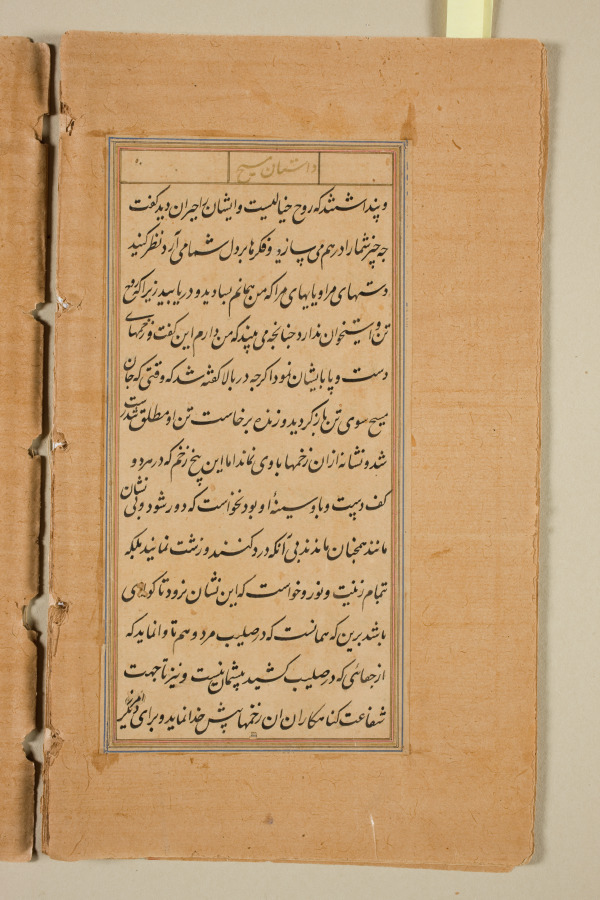 داستان مسیح
و پنداشتند که روح خیالیست و ایشان را حیران دید گفت
چه چیز شما را در هم می سازد و فکرها بر دل شما می آرد نظر کنید
دستهای مرا و پایهای مرا که من همانم بساوید و دریابید زیرا که روح
تن و استخوان ندارد چنانچه می بینید که من دارم این گفت و زخمهای
دست و پا بایشان نمود اگرچه در بالا گفته شد که وقتی که جان
مسیح سوی تن باز گردید و زنده برخاست تن او مطلق تندرست
شد و نشانه ازان زخمها با وی نماند اما این پنج زخم که در هر دو
کف دست و پا و سینهٔ او بود نخواست که دور شود و بی نشان
مانند همچنان ماندند بی آنکه درد کنند و زشت نمایند بلکه
تمام زینت و نور و خواست که این نشان نرود تا گواهی
باشد برین که همانست که در صلیب مرد و هم تا وانماید که
از جفائی که در صلیب کشید پشیمان نیست و نیز تا جهت
شفاعت گناهکاران ان زخمها پیش خدا نماید و برای دیگر